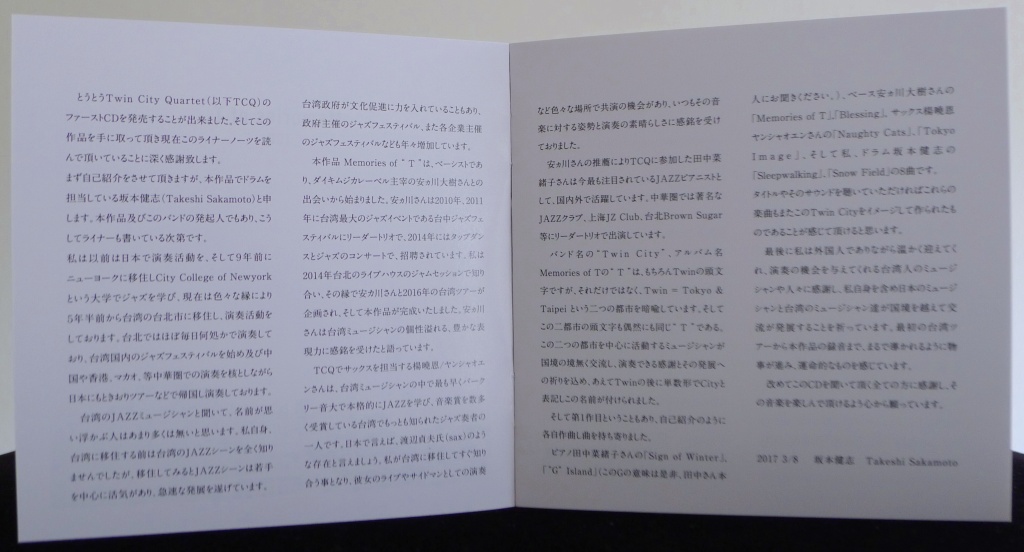 とうとうTwin City Quartet(以下TCQ)の
ファーストCDを発売することが出来ました。そしてこの
作品を手に取って頂き現在このライナーノーツを読
んで頂いていることに深く感謝致します。
まず自己紹介をさせて頂きますが、本作品でドラムを
担当している坂本健志(Takeshi Sakamoto)と申
します。本作品及びこのバンドの発起人でもあり、こう
してライナーも書いている次第です。
私は以前は日本で演奏活動を、そして9年前に
ニューヨークに移住しCity College of Newyork
という大学でジャズを学び、現在は色々な縁により
5年半前から台湾の台北市に移住し、演奏活動を
しております。台北ではほぼ毎日何処かで演奏して
おり、台湾国内のジャズフェスティバルを始め及び中
国や香港、マカオ、等中華圏での演奏を核としながら
日本にもときおりツアーなどで帰国し演奏しております。
台湾のJAZZミュージシャンと聞いて、名前が思
い浮かぶ人はあまり多くは無いと思います。私自身、
台湾に移住する前は台湾のJAZZシーンを全く知り
ませんでしたが、移住してみるとJAZZシーンは若手
を中心に活気があり、急速な発展を遂げています。
台湾政府が文化促進に力を入れていることもあり、
政府主催のジャズフェスティバル、また各企業主催
のジャズフェスティバルなども年々増加しています。
本作品 Memories of "T"は、ベーシストであ
り、ダイキムジカレーベル主宰の安ヵ川大樹さんとの
出会いから始まりました。安ヵ川さんは2010年、2011
年に台湾最大のジャズイベントである台中ジャズフェ
スティバルにリーダートリオで、2014年にはタップダン
スとジャズのコンサートで、招聘されています。私は
2014年台北のライブハウスのジャムセッションで知り
合い、その縁で安カ川さんと2016年の台湾ツアーが
企画され、そして本作品が完成いたしました。安ヵ川
さんは台湾ミュージシャンの個性溢れる、豊かな表
現力に感銘を受けたと語っています。
TCQでサックスを担当する楊曉恩/ヤンシャオエ
ンさんは、台湾ミュージシャンの中で最も早くバーク
リー音大で本格的にJAZZを学び、音楽賞を数多
く受賞している台湾でもっとも知られたジャズ奏者の
一人です。日本で言えば、渡辺貞夫氏(sax)のよう
な存在と言えましょう。私が台湾に移住してすぐ知り
合う事となり、彼女のライブやサイドマンとしての演奏
など色々な場所で共演の機会があり、いつもその音
楽に対する姿勢と演奏の素晴らしさに感銘を受け
ておりました。
安ヵ川さんの推薦によりTCQに参加した田中菜
緒子さんは今最も注目されているJAZZピアニストと
して、国内外で活躍しています。中華圏では著名な
JAZZクラブ、上海JZ Club、台北Brown Sugar
等にリーダートリオで出演しています。
バンド名の"Twin City"、アルバム名
Memories of Tの"T"は、もちろんTwinの頭文
字ですが、それだけではなく、Twin = Tokyo &
Taipei という二つの都市を暗喩しています。そして
この二都市の頭文字も偶然にも同じ"T"である。
この二つの都市を中心に活動するミュージシャンが
国境の境無く交流し、演奏できる感謝とその発展へ
の祈りを込め、あえてTwinの後に単数形でCityと
表記しこの名前が付けられました。
そして第1作目ということもあり、自己紹介のように
各自作曲し曲を持ち寄りました。
ピアノ田中菜緒子さんの「Sign of Winter」、
「"G" Island」(このGの意味は是非、田中さん本
人にお聞きください。)、ベース安ヵ川大樹さんの
「Memories of T」,「Blessing」、サックス楊曉恩
ヤンシャオエンさんの「Naughty Cats」、「Tokyo
Image」、そして私、ドラム坂本健志の
「Sleepwalking」、「Snow Field」の8曲です。
タイトルやそのサウンドを聴いていただければこれらの
楽曲もまたこのTwin Cityをイメージして作られたも
のであることが感じて頂けると思います。
最後に私は外国人でありながら温かく迎えてく
れ、演奏の機会を与えてくれる台湾人のミュージ
シャンや人々に感謝し、私自身を含め日本のミュージ
シャンと台湾のミュージシャン達が国境を越えて交
流が発展することを祈っています。最初の台湾ツ
アーから本作品の録音まで、まるで導かれるように物
事が進み、運命的なものを感じています。
改めてこのCDを聞いて頂く全ての方に感謝し、そ
の音楽を楽しんで頂けるよう心から願っています。
2017 3/8 坂本健志 Takeshi Sakamoto